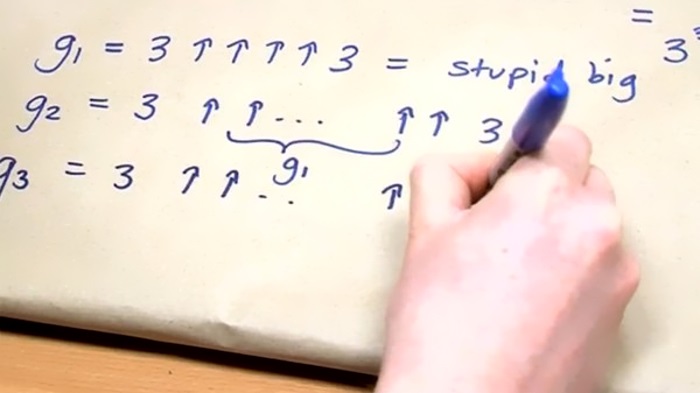 =
3
g₁ = 3 ↑ ↑ ↑ ↑ 3 = stupid big
g₂ = 3 ↑ ↑ ... ↑ ↑ 3
g₁
g₃ = 3 ↑ ↑ ... ↑